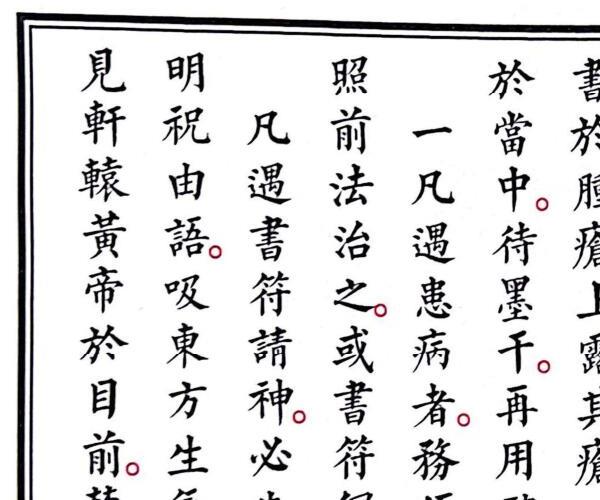 書於腫瘡上露其瘡
於當中。待墨干。再用
一凡遇患病者。務
照前法治之。或書符
凡遇書符請神。必
明祝由語。吸東方生
見軒轅黃帝於目前。